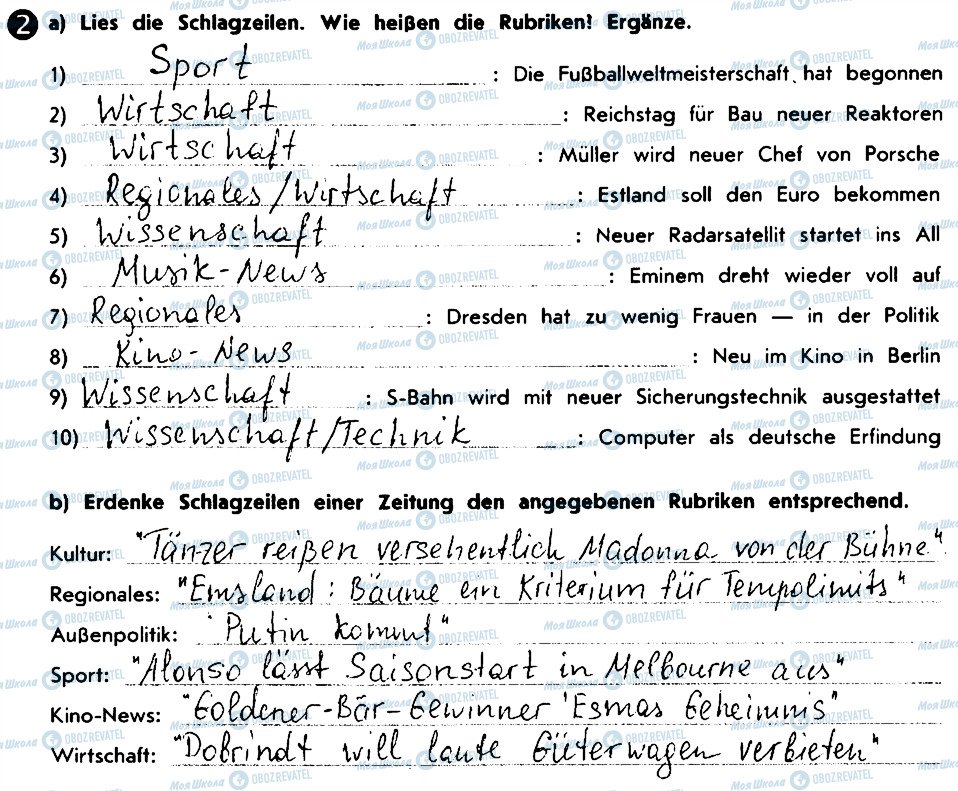 2 a) Lies die Schlagzeilen. Wie heißen die Rubriken? Ergänze.
1) Sport : Die Fußballweltmeisterschaft hat begonnen
2) Wirtschaft : Reichstag für Bau neuer Reaktoren
3) Wirtschaft : Müller wird neuer Chef von Porsche
4) Regionales/Wirtschaft : Estland soll den Euro bekommen
5) Wissenschaft : Neuer Radarsatellit startet ins All
6) Musik-News : Eminem dreht wieder voll auf
7) Regionales : Dresden hat zu wenig Frauen — in der Politik
8) Kino-News : Neu im Kino in Berlin
9) Wissenschaft : S-Bahn wird mit neuer Sicherungstechnik ausgestattet
10) Wissenschaft/Technik : Computer als deutsche Erfindung
b) Erdenke Schlagzeilen einer Zeitung den angegebenen Rubriken entsprechend.
Kultur: "Tänzer reißen versehentlich Madonna von der Bühne"
Regionales: "Emsland: Bäume ein Kriterium für Tempolimits"
Außenpolitik: "Putin kommt"
Sport: "Alonso lässt Saisonstart in Melbourne aus"
Kino-News: "Goldener-Bär-Gewinner 'Esmas Geheimnis"
Wirtschaft: "Dobrindt will laute Güterwagen verbieten"
Моя Школа OBOZREVATEL